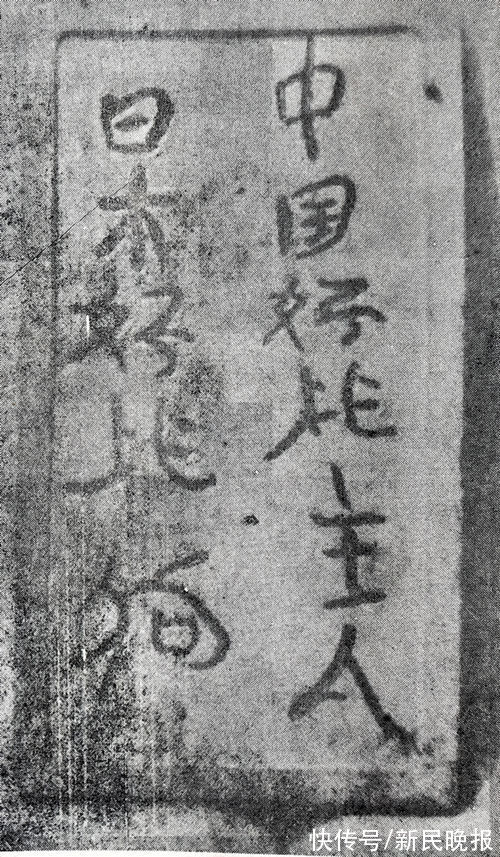 中国好比主人
日本好比狗
快传号/新民晚报